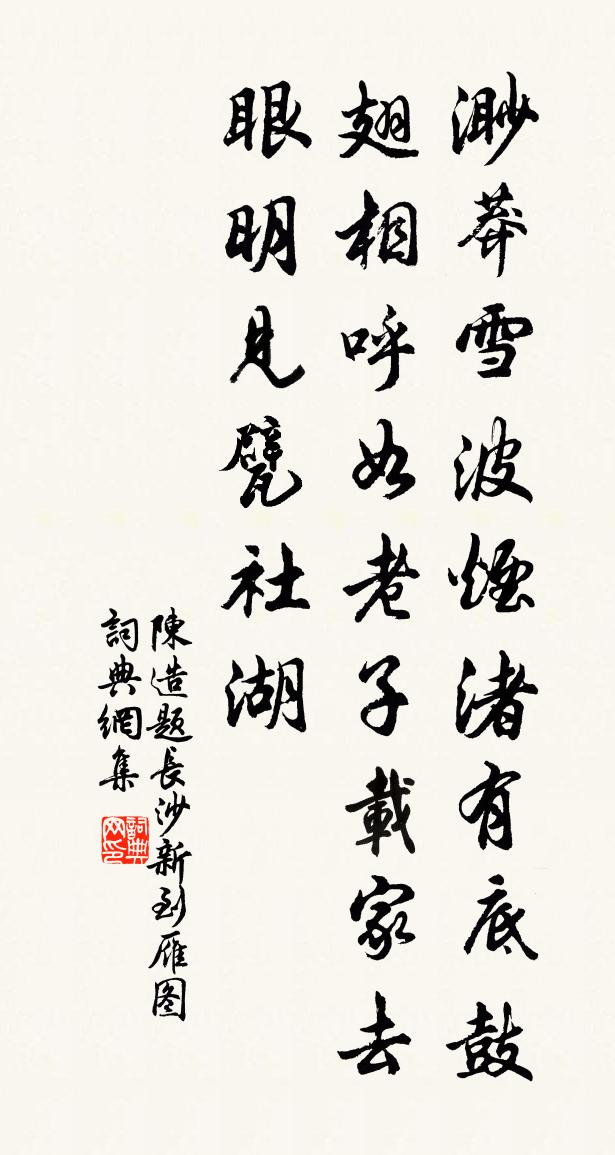 渺莽雪波煙渚有底鼓
翅相呼如老子載家去
眼明見甓社湖
陳造題長沙新到雁图
詞典網集
詞典网印